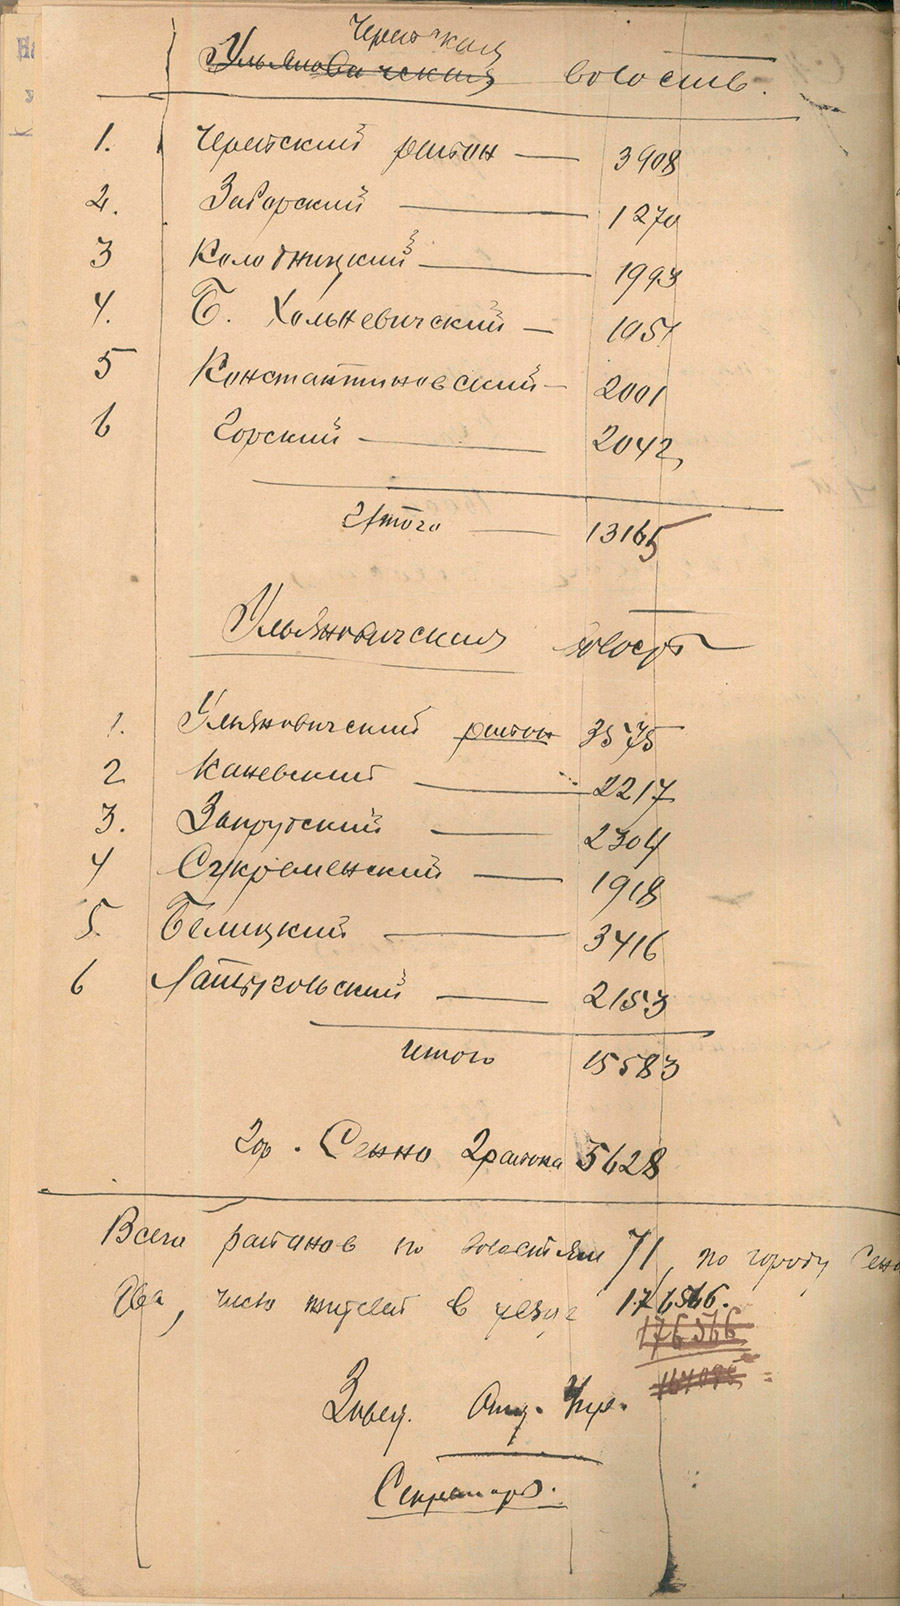 Черейская
Ульяновическая волость.
1. Черейский район — 3908
2. Заборский — 1270
3 Колодницкий — 1993
4. Б. Хольневичский — 1951
5 Константиновский — 2001
6 Горский — 2042
Итого — 13165
Ульяновичская волость
1. Ульяновичский район 3575
2 Каневский — 2217
3. Запрудский — 2304
4 Сукременский — 1918
5. Белицкий — 3416
6 Латыковский — 2153
Итого 15583
Гор. Сенно 2 района 5628
Всего районов по волостям 71, по городу Сенно
два, число жителей в уезде 176566.
176366
Завед. Отд. Упр.
Секретарь.